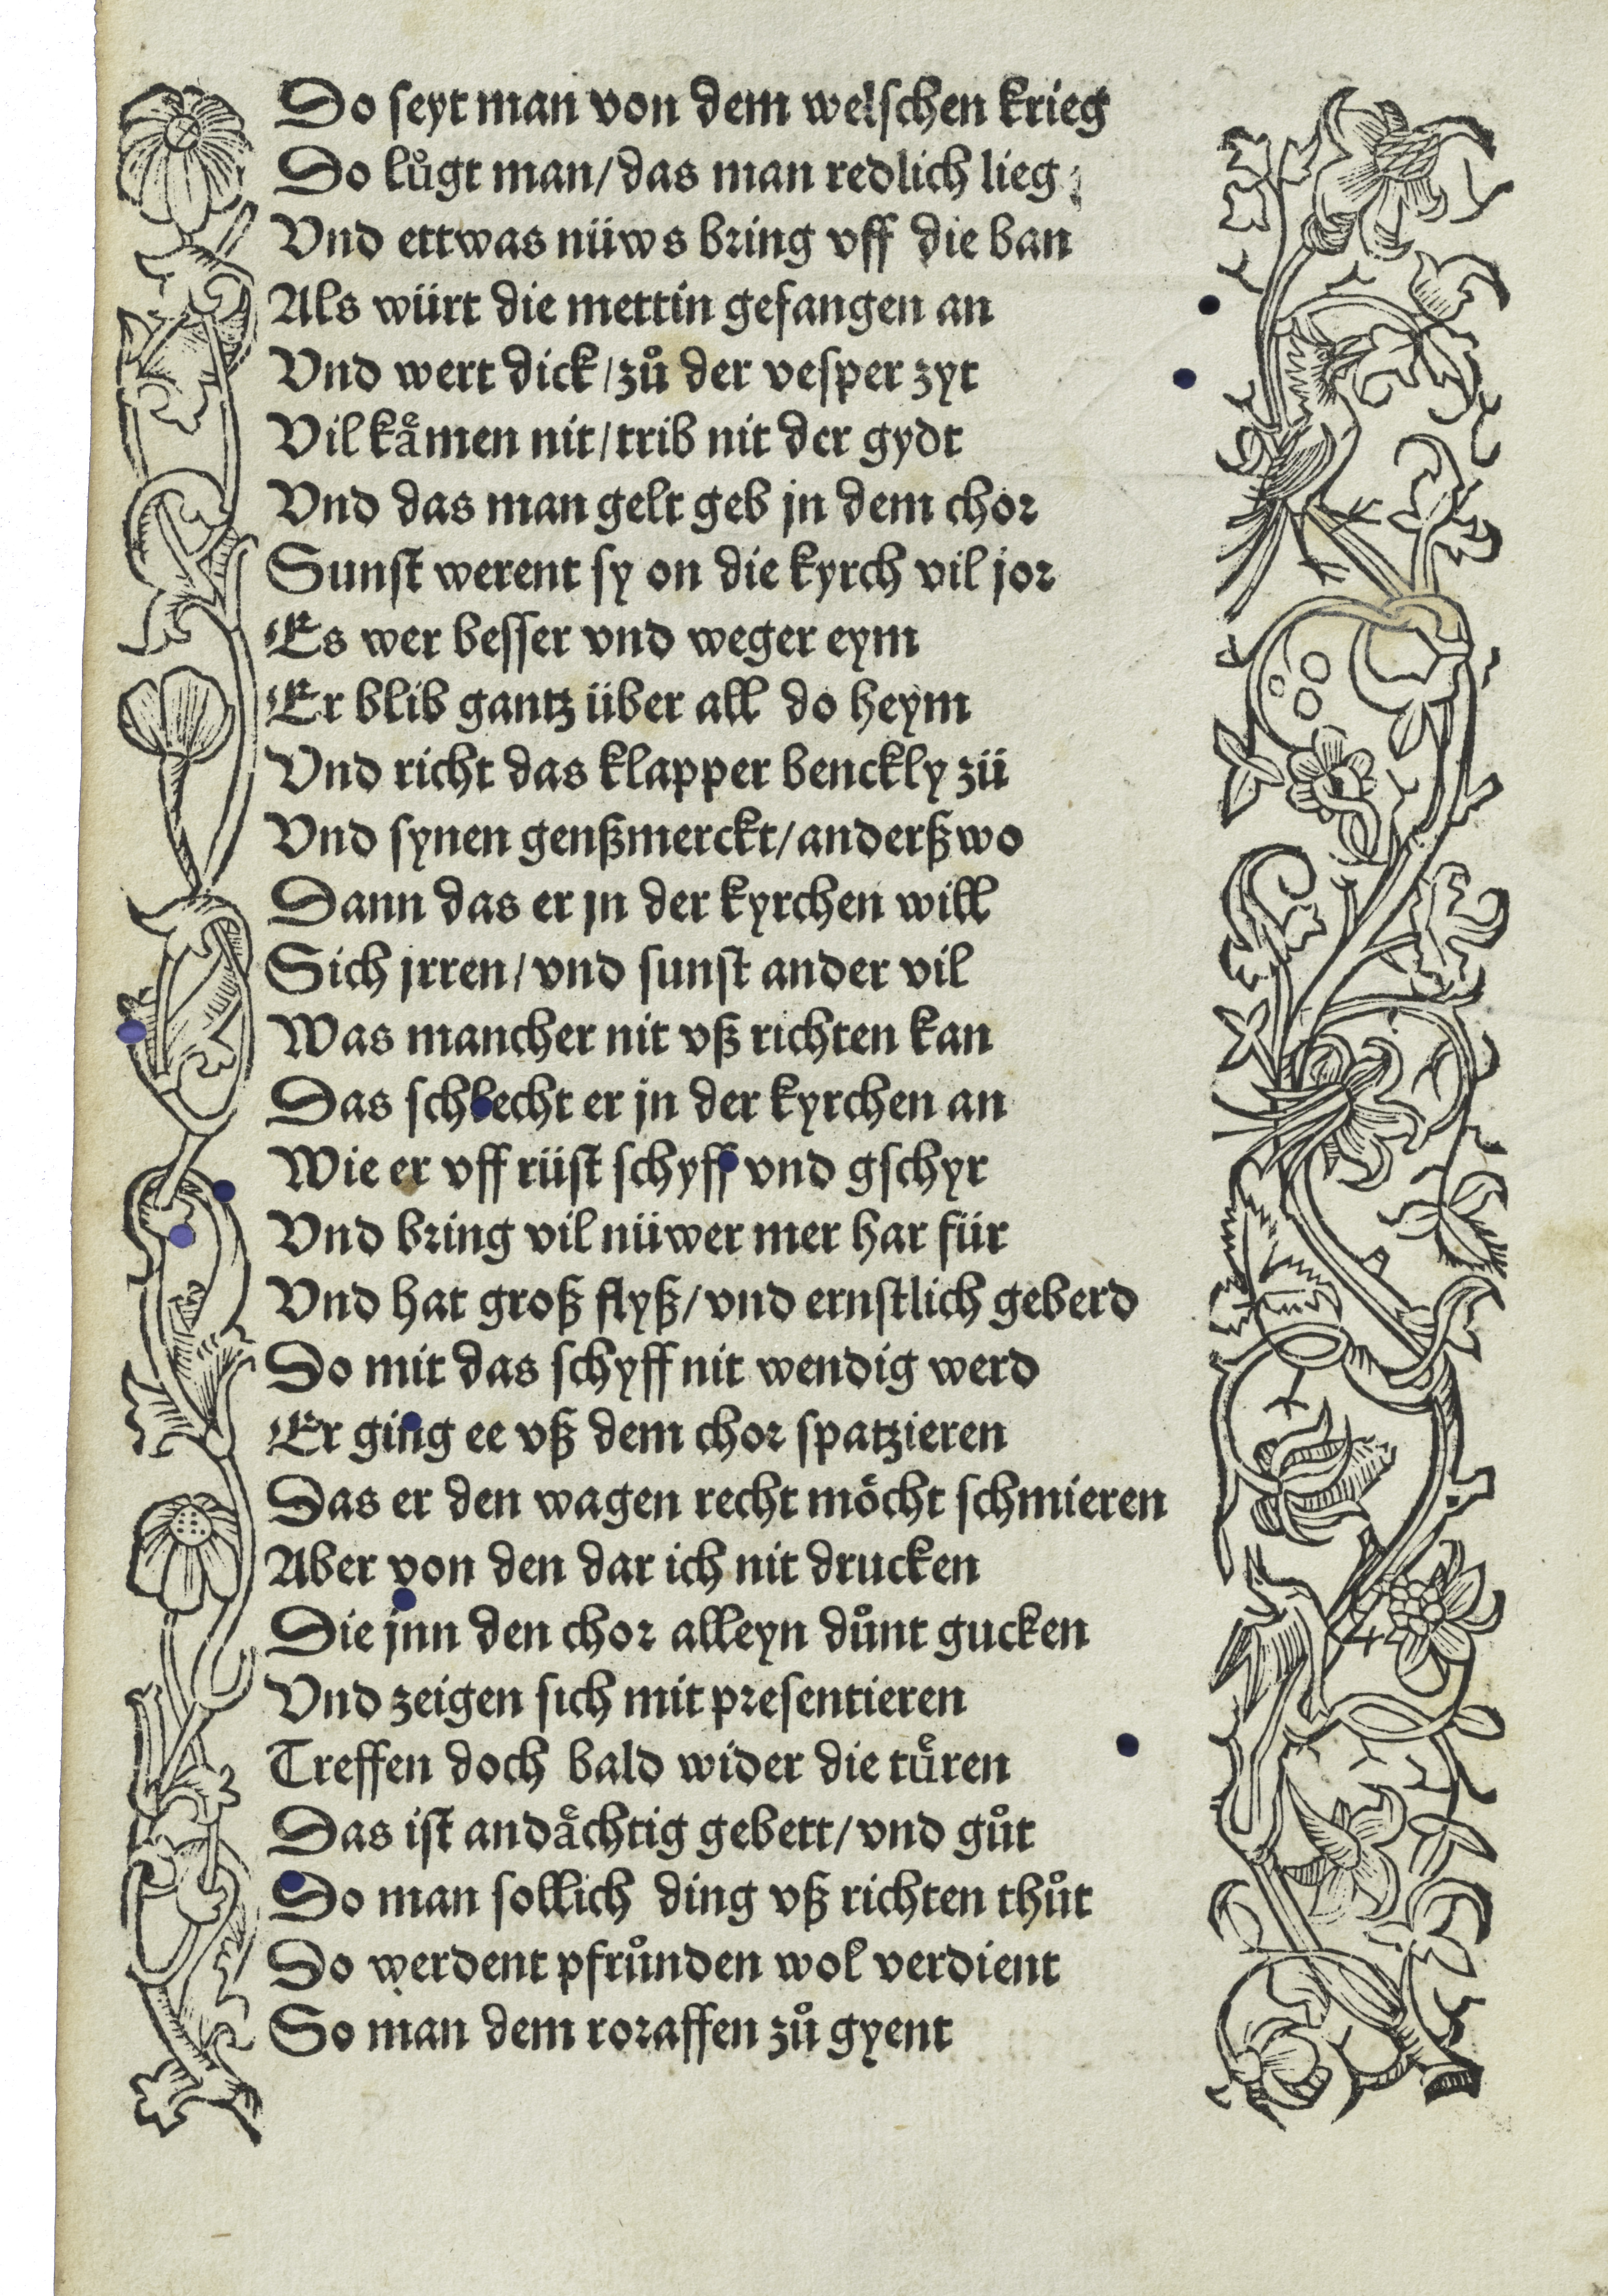 Do seyt man von dem welschen krieg
Do lůgt man/das man redlich lieg
Vnd ettwas nüws bring vff die ban
Als würt die mettin gefangen an
Vnd wert dick/zů der vesper zyt
Vil kaͤmen nit/trib nit der gydt
Vnd das man gelt geb jn dem chor
Sunst werent sy on die kyrch vil jor
Es wer besser vnd weger eym
Er blib gantz über all do heym
Vnd richt das klapper benckly zü
Vnd synen genßmerckt/anderßwo
Dann das er jn der kyrchen will
Sich jrren/vnd sunst ander vil
Was mancher nit vß richten kan
Das schlecht er jn der kyrchen an
Wie er vff rüst schyff vnd gschyr
Vnd bring vil nüwer mer har für
Vnd hat groß flyß/vnd ernstlich geberd
Do mit das schyff nit wendig werd
Er ging ee vß dem chor spatzieren
Das er den wagen recht moͤcht schmieren
Aber von den dar ich nit drucken
Die jnn den chor alleyn důnt gucken
Vnd zeigen sich mit presentieren
Treffen doch bald wider die tuͤren
Das ist andaͤchtig gebett/vnd gůt
Do man sollich ding vß richten thůt
Do werdent pfrůnden wol verdient
So man dem roraffen zů gyent